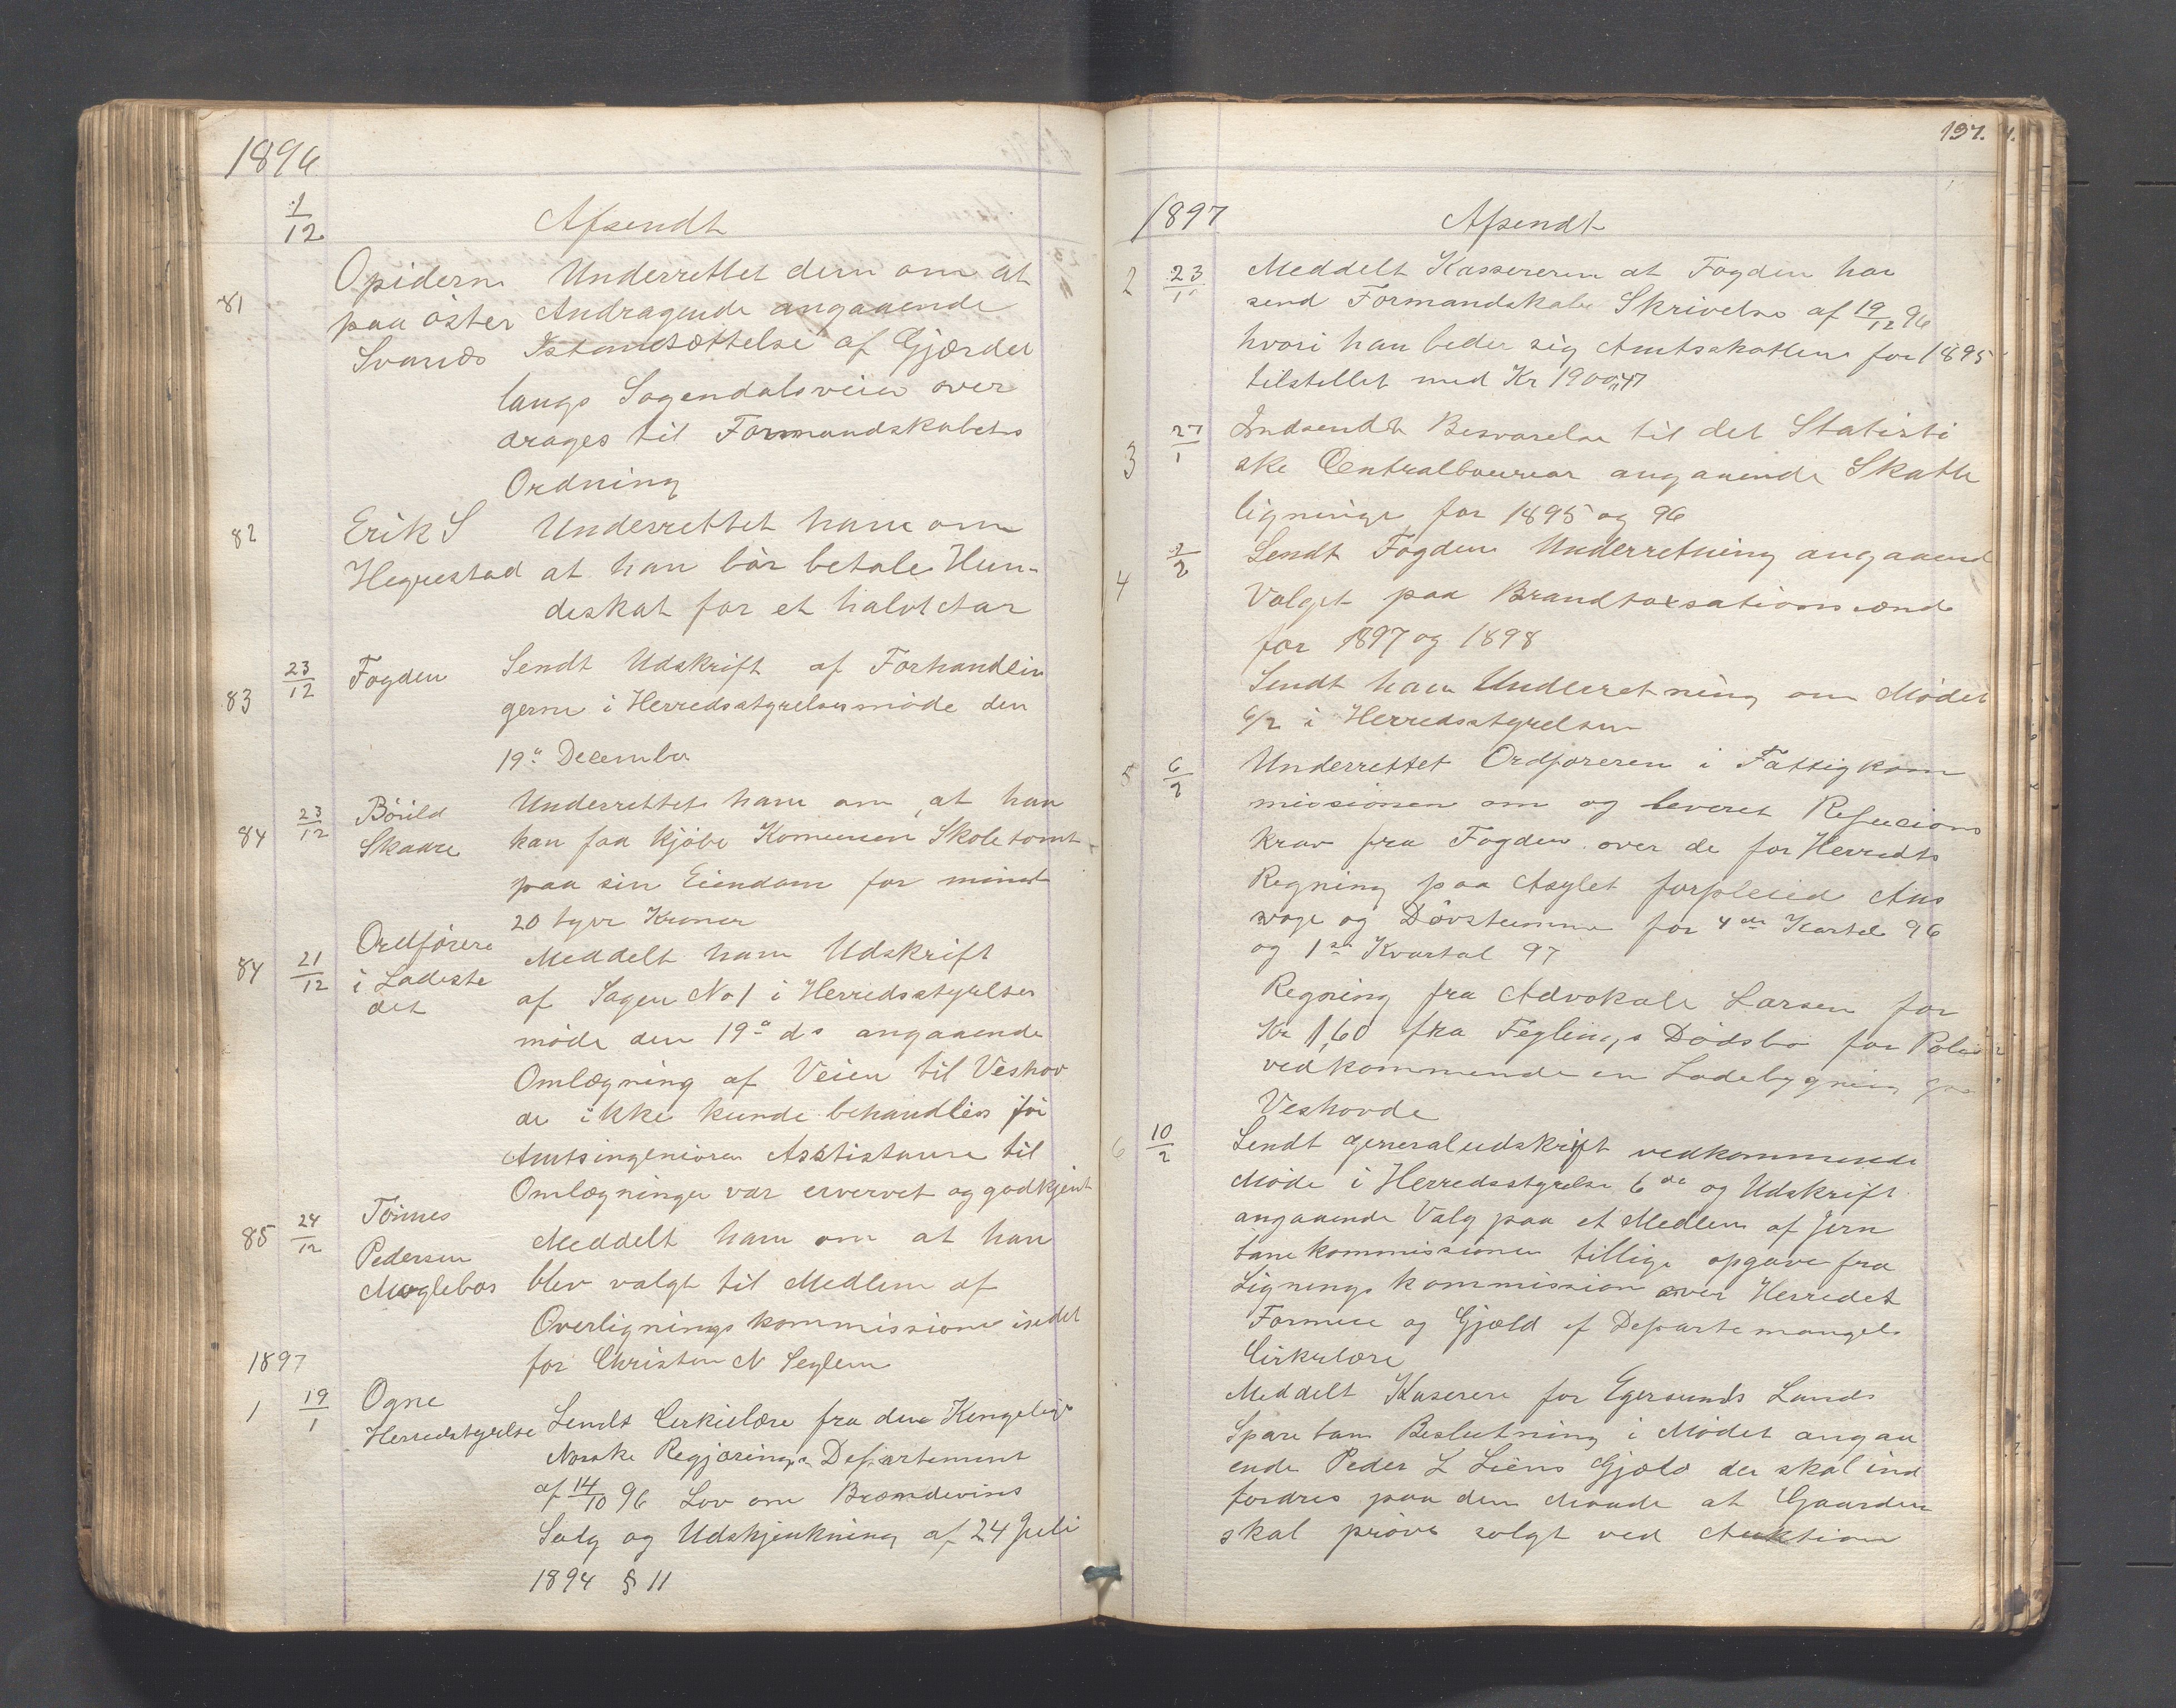 1896
1/12 Afsendt
81 Opiderne Underrettet dem om at
paa öster Andragende angaaende
Svanæs Istandsættelse af Gjærdet
langs Sogendalsveien over
drages til Formandskabets
Ordning
82 Erik S Underrettet ham om
Hegrestad at han bör betale Hun-
deskat for et halvt Aar
83 23/12 Fogden Sendt Udskrift af Forhandlin
gerne i Herredsstyrelsesmöde den
19de December
84 23/12 Börild Underrettet ham om, at han
Skaare kan faa kjöbe Komunen Skoletomt
paa sin Eiendom for mindst
20 tyve Kroner
84 21/12 Ordförere Meddelt ham Udskrift
i Ladeste af Sagen No 1 i Herredsstyrelses
det möde den 19de ds angaaende
Omlægning af Veien til Veshov
de ikke kunde behandles för
Amtsingeniören Asstistanse til
Omlægningen var ervervet og godkjent
85 24/12 Tönnes
Pedersen Meddelt ham om at han
Møglebos blev valgt til Medlem af
Overligningskommissionen isedet
for Christen N Seglem
1897
1 19/1 Ogne
Herredstyrelse Sendt Cirkulære fra den Kongelige
Norske Regjærings Departement
af 14/10 96 Lov om Brændevins
Salg og Udskjenkning af 24 Juli
1894 § 11
197.
1897 Afsendt
2 23/1 Meddelt Kassereren at Fogden har
send Formandskabe Skrivelse af 19/12 96
hvori han beder sig Amtsskatten for 1895
tilstillet med Kr 1900,47
3 27/1 Indsendt Besvarelse til det Statisti
ske Centralbureau angaaende Skatte
ligninge for 1895 og 96
4 2/2 Sendt Fogden Underretning angaaend
Valget paa Brandtaxsationsmænd
for 1897 og 1898
Sendt ham Underretning om Mødet
6/2 i Herredsstyrelsen
5 6/2 Underrettet Ordføreren i Fattigkom
missionen om og leveret Refucions
krav fra Fogden over de for Herredts
Regning paa Asylet forpleied Ans
svage og Dövstumme for 4de Kartal 96
og 1ste Kvartal 97
Regning fra Advokale Larsen for
Kr 1,60 fra Feylings Dödsbo for Polis
vedkommende en Ladebygning paa
Veshovde
6 10/2 Sendt generaludskrift vedkommende
Möde i Herredsstyrelse 6de og Udskrift
angaaende Valg paa et Medlem af Jern
banekommissionen tillige opgave fra
Ligningskommission over Herredet
Formue og Gjæld ef Departemangets
Cirkulære
Meddelt Kaserere for Egersunds Lands
Sparebank Beslutning i Mödet angaa
ende Peder L Liens Gjæld der skal ind
fordres paa den Maade at Gaarden
skal pröves solgt ved Auktion